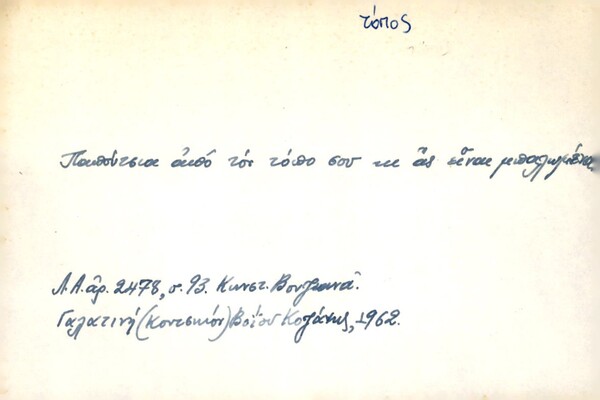 τόπος
Παπούτσια ἀπό τόν τόπο σου κι ἄς εἶναι μπαλωμένα
Λ.Α. ἀρ. 2478, σ. 93. Κωνστ.
Γαλατινή (Κοντσικόν) Βοΐου Κοζάνης, 1962.